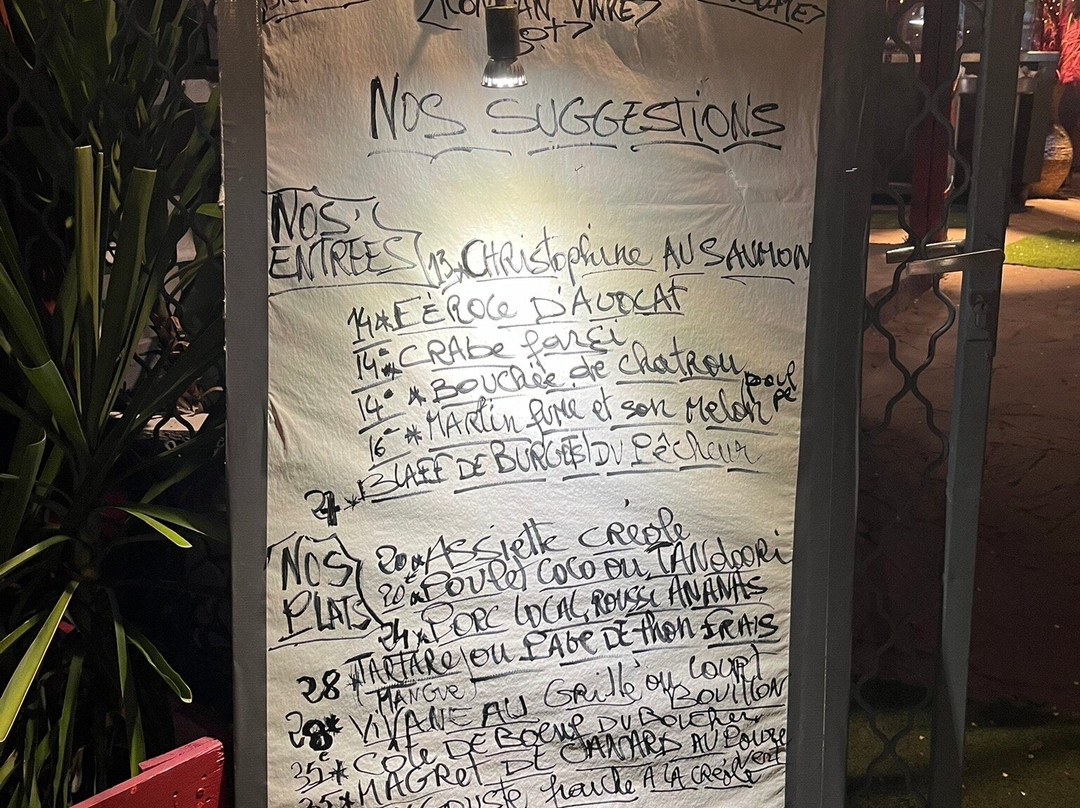 VIVRE>
NOS SUGGESTIONS
NOS
ENTREES
13 * CHRistophine AU SAUMON
14 * FÉROCE D'AVOCAT
14 * CRABe farci
14 * BOUCHée de chatrou
16 * MARlin fumé et son Melon
* BLAFF DE BURGOS DU Pêcheur
NOS
PLATS
20 * ASSiette créole
20 * Poulet COCO OU TANdoori
24 * PORC LOCAL, ROUSSI ANANAS
28 * TARTARE OU PAVE DE thon FRAIS
(MANGUE)
28 * VIVANEAU GRillé ou COURT
BOUILLON
35 * CÔTE DE BOEUF DU BOUCHER
25 * MAGRET DE CANARD AU POIVRE
vert
LANGOUSTE fraiche A LA CRéole